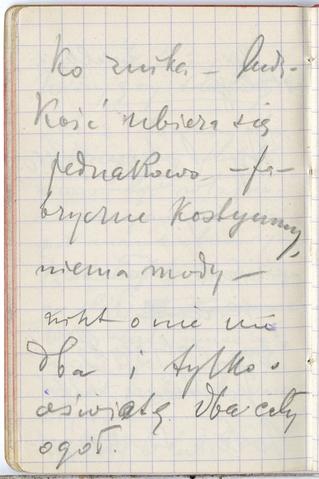 ko znika – ludz-
kość ubiera się
jednakowo – fa-
bryczne kostyumy,
niema mody –
nikt o nic nie
dba i tylko o
oświatę dba cały
ogół.